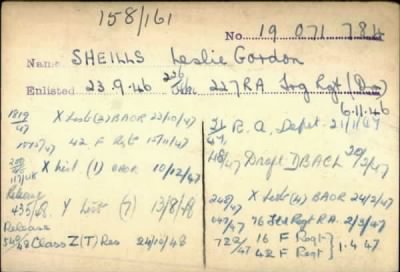 158/161
No. 19 071 784
Name SHEILLS Leslie Gordon
Enlisted 23.9.46 227 RA Trg Rgt
6.11.46
1819/47 X List (2) BAOR 22/10/47
42 F Rgt 15/11/47
X List (1) BAOR 10/12/47
Release
435/48. Y List (7) 13/8/48
Release
548/48 Class Z(T) Res 24/10/48
R.A. Depot 21/1/47
48/47 Draft DBACL 20/2/47
248/47 X List (4) BAOR 24/2/47
76 Fld Rgt RA. 2/3/47
722/47 16 F Regt } 1.4.47
42 F Regt